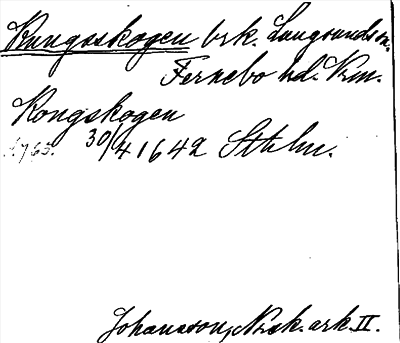 Kungsskogen brk. Långsunds sn.
Fernebo hd. Vrm.
Kongskogen
30/4 1642 Sthlm.
Johansson, Norsk. ark. II.